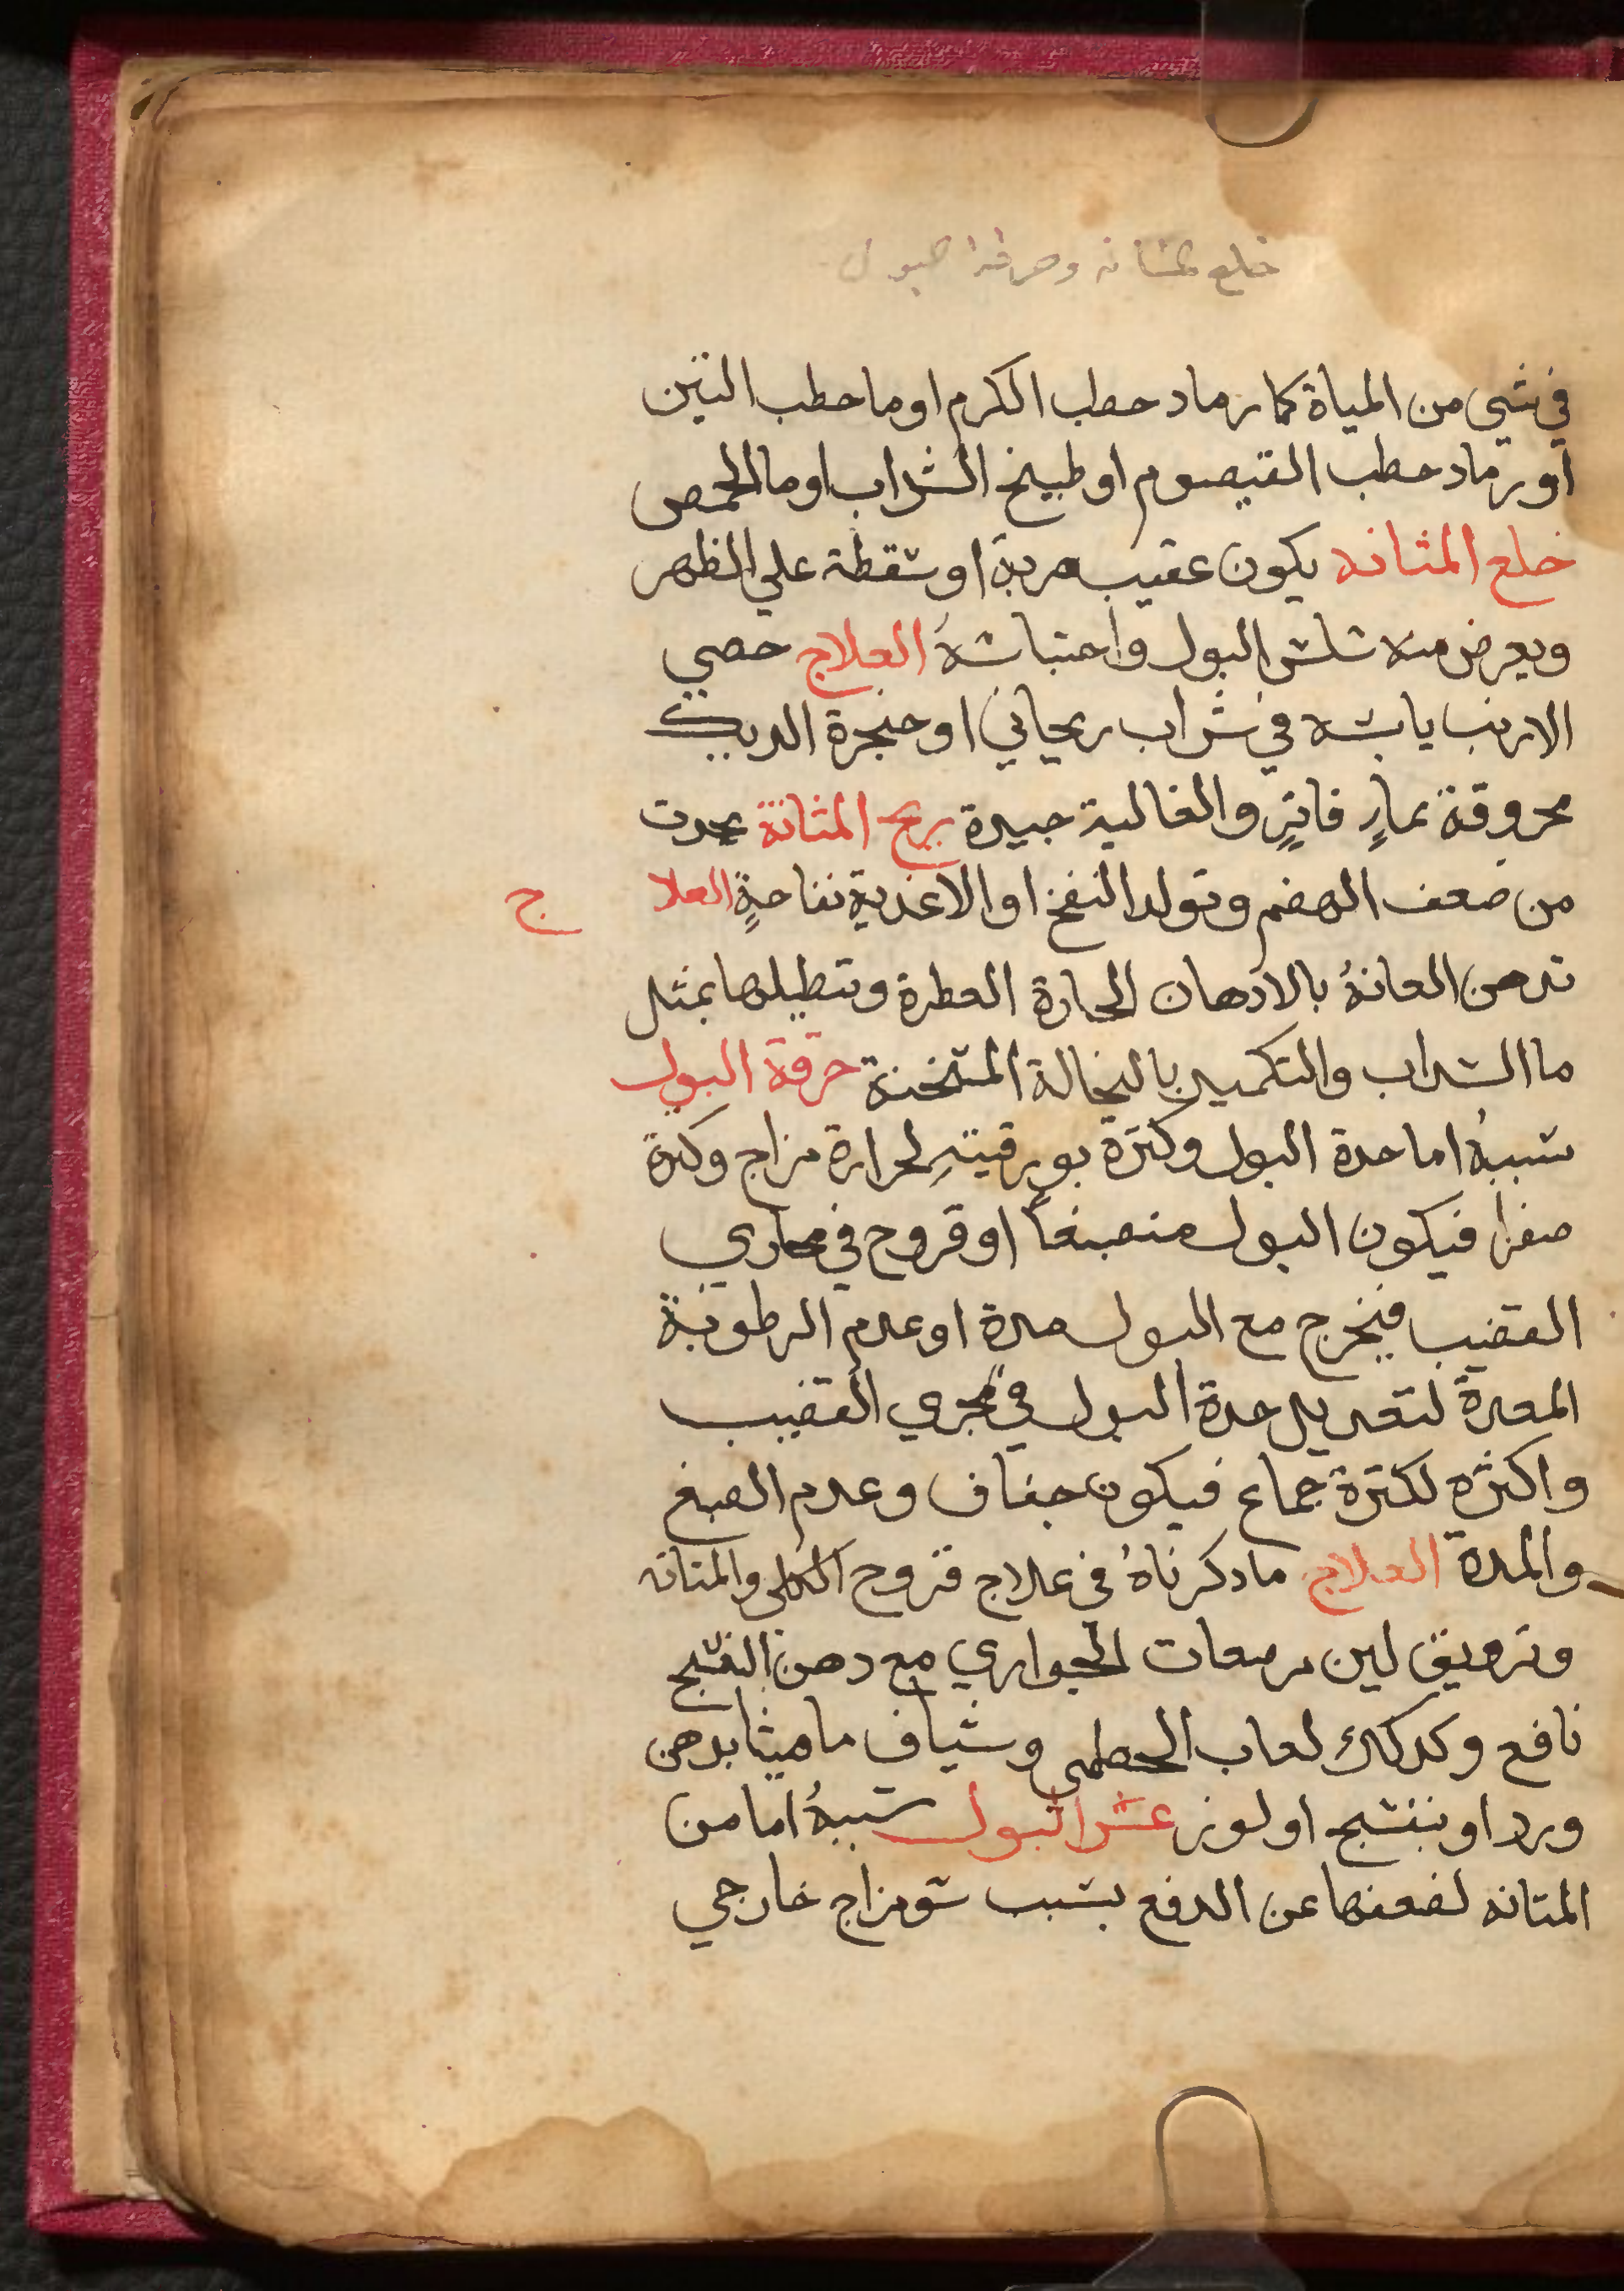 خلع المثانه وحرقة البول
في شي من المياة كما رماد حطب الكرم او ما حطب التين
او رماد حطب القيصوم او طبيخ الشراب او ما الحمص
خلع المثانه يكون عقيب ضربة او سقطة علي الظهر
ويعرض منه سلس البول واحتباسهُ العلاج خصي
الارنب يابسه في شراب ريحاني او حنجرة الديك
محروقة بماءٍ فاترٍ والغالية جيدة ريح المثانة يحدث
من ضعف الهضم وتولد النفخ او الاغذية نفاخةٍ العلاج
تدهن العانةُ بالادهان الحارة العطرة وتنطيلها بمثل
ما الشراب والتكميد بالنخالة المسخنة حرقة البول
سببهُ اما حدة البول وكثرة بورقيتهِ لحرارة مزاج وكثرة
صفرا فيكون البول منصبغاً او قروح في مجاري
القضيب فيخرج مع البول مدة او عدم الرطوبة
المعدة لتعديل حدة البول في مجري القضيب
واكثره لكثرة جماع فيكون جفاف وعدم الصبغ
والمدة العلاج ما دكرناهُ في علاج قروح الكلي والمثانه
وتزويق لبن مرضعات الجواري مع دهن البنفسج
نافع وكدلك لعاب الخطمي وشياف ماميثا بدهن
ورد او بنفسج او لوز عسر البول سببهُ اما من
المثانه لضعفها عن الدفع بسبب سو مزاج خارجي